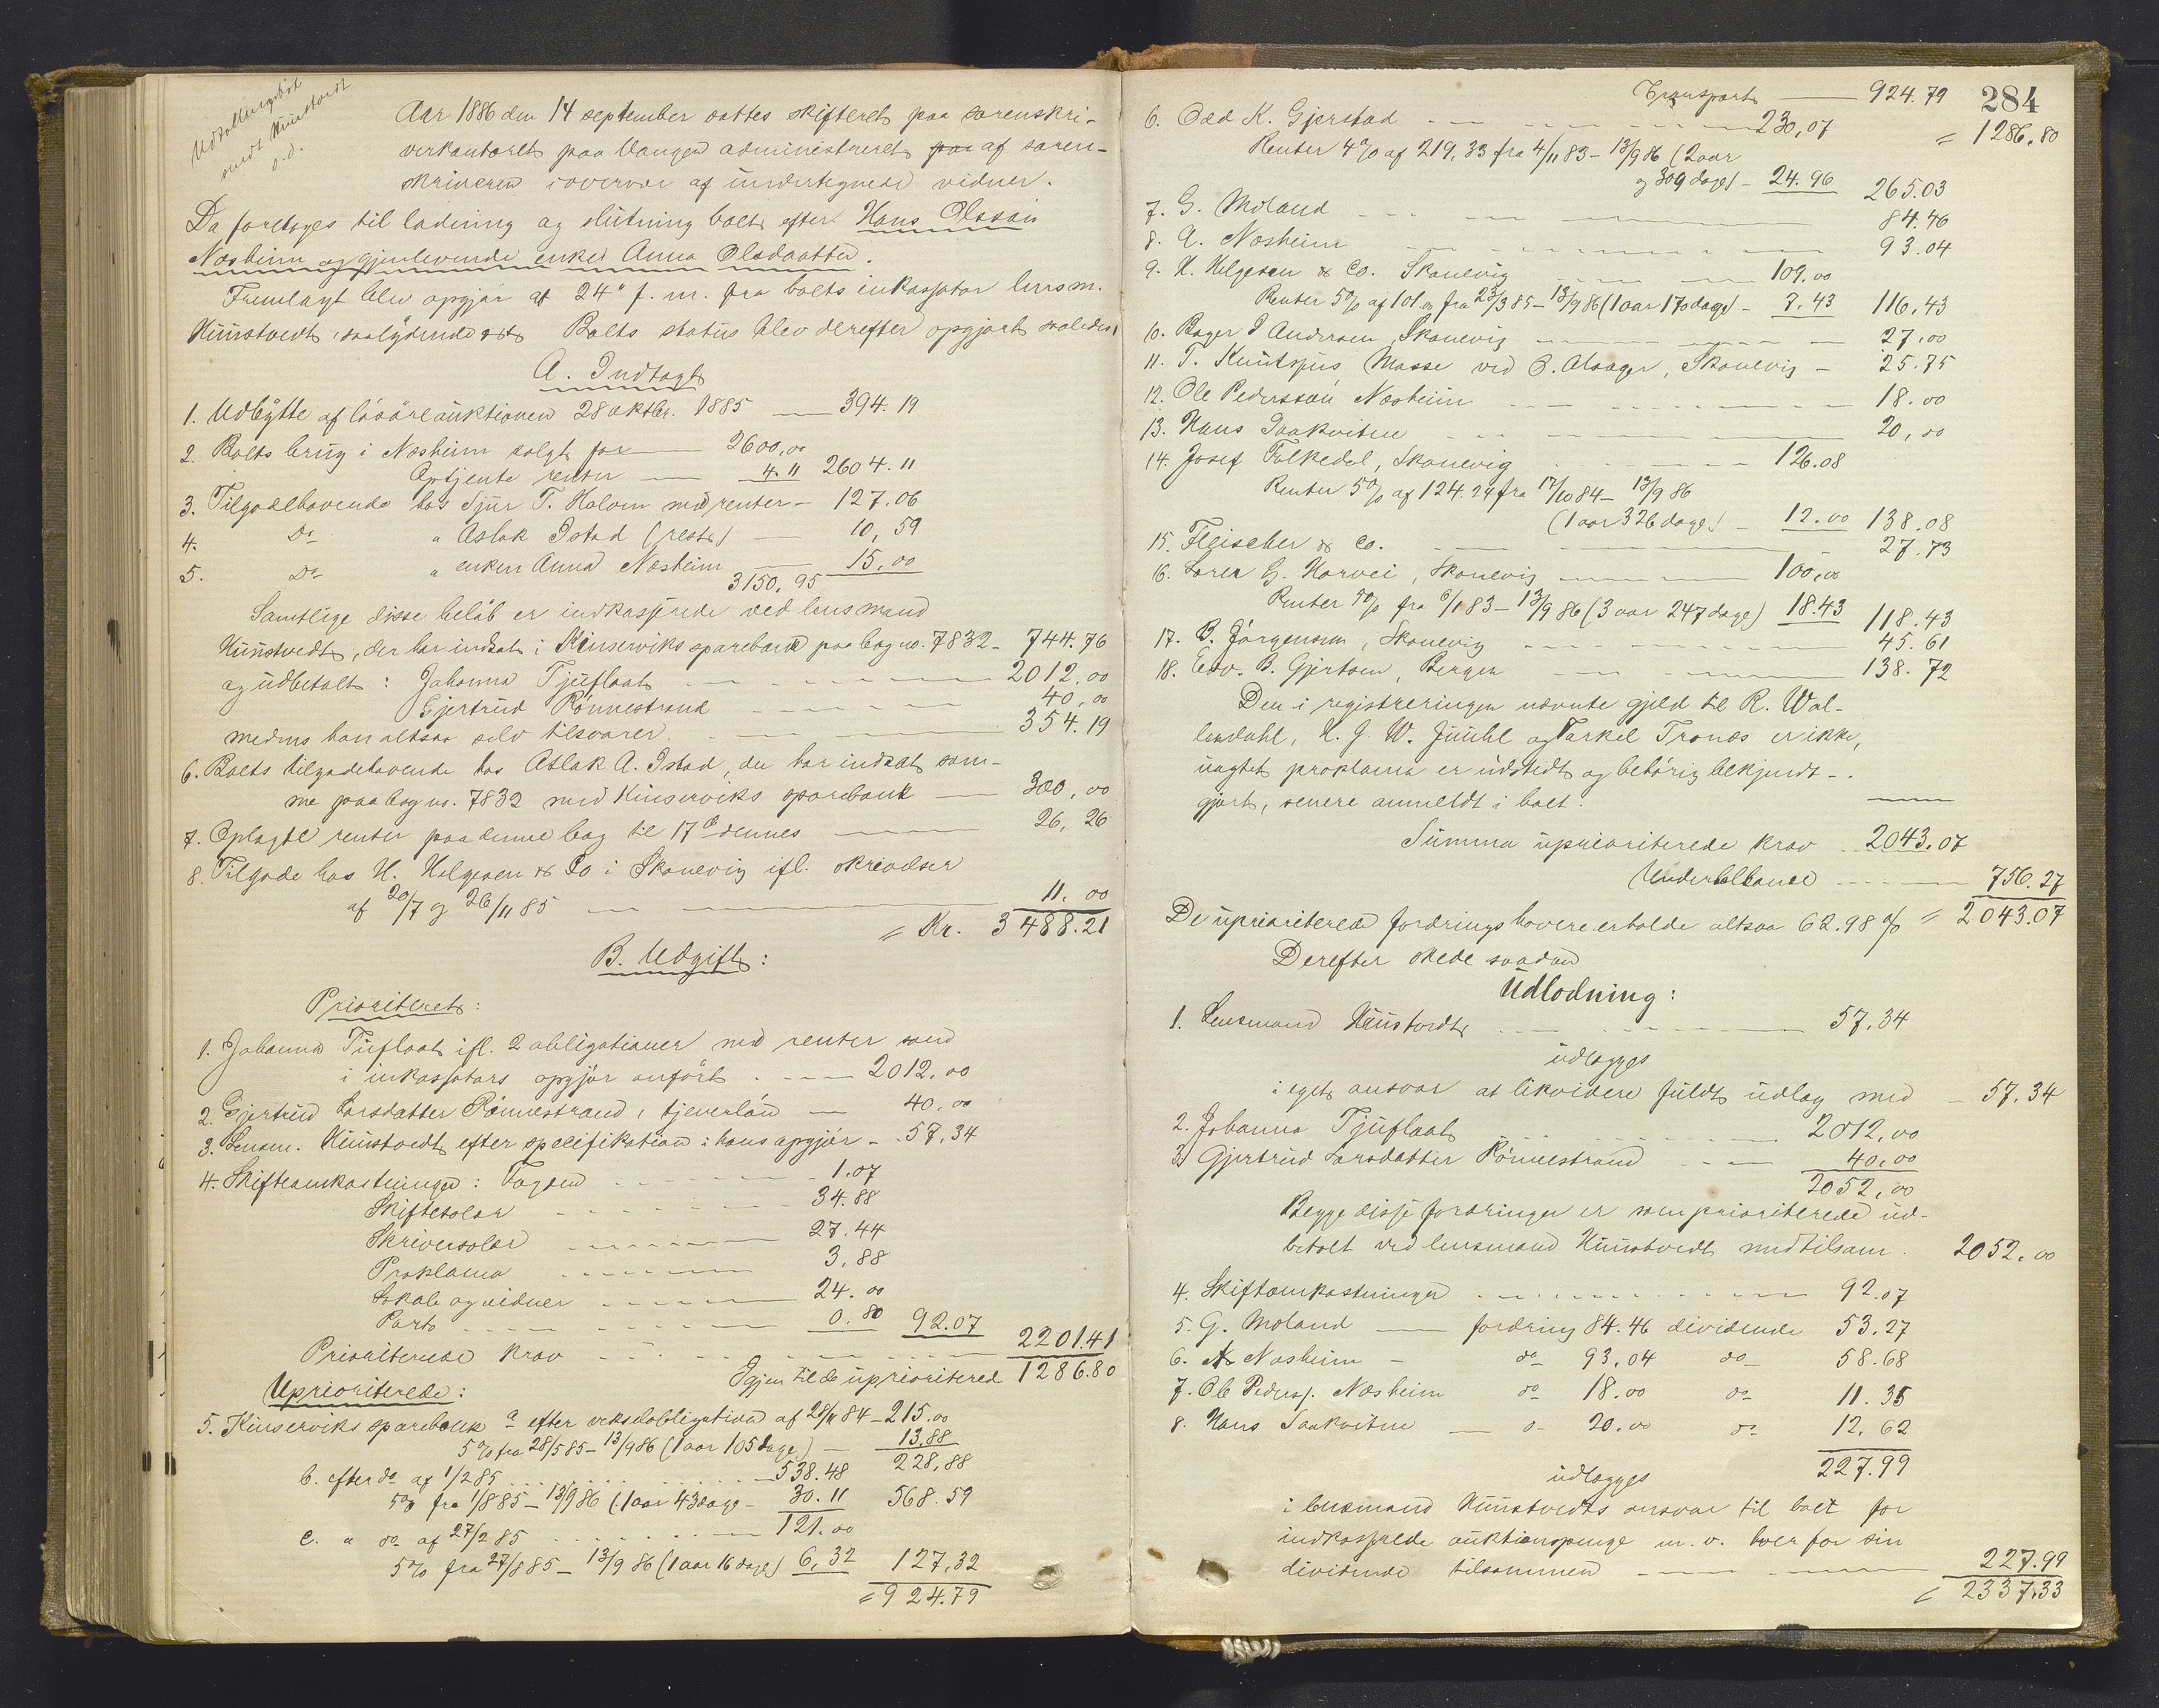 Udtallingsböl
sendt Kunstvedt
s.d.
Aar 1886 den 14 september sattes skifteret paa sorenskri-
verkontoret paa Vangen administreret paa af soren-
skriveren i overvær af undertegnede vidner.
Da foretoges til lodning og slutning boet efter Hans Olsson
Næsheim og gjenlevende enke Anna Olsdaatter.
Fremlagt blev opgjør af 24de f. m. fra boets inkassator lensm.
Kunstvedt, saalydende Boets status blev derefter opgjort saaledes:
A. Indtægt
1. Udbytte af løsøreauktionen 28 oktbr. 1885 — 394.19
2. Boets brug i Næsheim solgt for — 2600,00
Optjente renter — 4.11 2604.11
3. Tilgodehavende hos Sjur T. Halven med renter — 127.06
4. Do " Aslak Istad (rest) — 10,59
5. Do " enken Anna Næsheim — 15.00
3150.95
Samtlige disse beløb er indkasserede ved lensmand
Kunstvedt, der har indsat i Kinserviks sparebank paa bog no. 7832 - 744.76
og udbetalt: Johanna Tjuflaat — 2012.00
Gjertrud Rønnestrand — 40,00
medens han altsaa selv tilsvarer — 354.19
6. Boets tilgodehavende hos Aslak A. Istad, der har indsat sam-
me paa bog no. 7832 med Kinserviks sparebank — 300,00
7. Oplagte renter paa denne bog til 17de dennes — 26,26
8. Tilgode hos H. Helgesen & Co i Skonevig ifl. skrivelser
af 20/7 og 26/11 85 — 11.00
= Kr. 3488.21
B. Udgift:
Prioriteret:
1. Johanna Tjuflaat ifl. 2 obligationer med renter som
i inkassators opgjør anført . — 2012,00
2. Gjertrud Larsdatter Rønnestrand, tjenerløn — 40.00
3. Lensm. Kunstvedt efter specifikation i hans opgjør - 57,34
4. Skifteomkostninger: Fogden — 1.07
Skiftesalær — 34.88
Skriversalær — 27.44
Proklama — 3,88
Lokale og vidner — 24.00
Porto — 0.80 92.07
Prioriterede krav — 2201.41
Igjen til de uprioriterede 1286.80
Uprioriterede:
5. Kinserviks sparebank a efter vekselobligation af 28/11 84 - 215,00
5% fra 28/5 85 - 13/9 86 (1 aar 105 dage) — 13.88
228,88
b. efter do af 1/2 85 — 538.48
5% fra 1/8 85 - 13/9 86 (1 aar 43 dage - 30.11 568.59
c. " do af 27/2 85 — 121.00
5% fra 27/8 85 - 13/9 86 (1 aar 16 dage) 6,32 127,32
= 924.79
284
Transport — 924.79
= 1286.80
6. Odd K. Gjerstad — 230,07
Renter 4% af 219,33 fra 4/11 83 - 13/9 86 (2 aar
og 309 dage) - 24.96 265.03
7. G. Moland — 84.46
8. A. Næsheim — 93.04
9. H. Helgesen & Co. Skonevig — 109.00
Renter 5% af 101,00 fra 23/3 85 - 13/9 86 (1 aar 170 dage) - 7.43 116,43
10. Bager J Andersen, Skonevig — 27,00
11. T. Knutspus Masse ved O. Alsager, Skonevig — 25.75
12. Ole Pederssøn Næsheim — 18.00
13. Hans Saakvitne — 20,00
14. Josef Falkedal, Skonevig — 126.08
Renter 5% af 124.24 fra 17/10 84 - 13/9 86
(1 aar 326 dage) - 12.00 138.08
15. Fleischer & Co. — 27.73
16. Lærer G. Harvei, Skonevig — 100,00
Renter 5% fra 6/1 83 - 13/9 86 (3 aar 247 dage) 18.43 118.43
17. B. Jørgensen, Skonevig — 45.61
18. Edv. B. Gjertsen, Bergen — 138.72
Den i registreringen nævnte gjeld til R. Wal-
lendahl, H. J. W. Juuhl og Tarkel Tronæs er ikke,
uagtet proklama er udstedt og behørig bekjendt-
gjort, senere anmeldt i boet.
Summa uprioriterede krav . 2043.07
Underballance — 756.27
De uprioriterede fordringshavere erholde altsaa 62.98 % = 2043.07
Derefter skede saadan
Udlodning:
1. Lensmand Kunstvedt — 57,34
udlægges
i eget ansvar at likvidere fuldt udlæg med - 57,34
2. Johanna Tjuflaat — 2012,00
3. Gjertrud Larsdatter Rønnestrand — 40,00
2052,00
Begge disse fordringer er som prioriterede ud-
betalt ved lensmand Kunstvedt med tilsam. 2052.00
4. Skifteomkostninger — 92.07
5. G. Moland — fordring 84.46 dividende 53.27
6. A. Næsheim - do 93,04 do 58.68
7. Ole Peders. Næsheim do 18.00 do 11.35
8. Hans Saakvitne — do 20.00 do 12,62
227.99
udlægges
i lensmand Kunstvedts ansvar til boet for
indkasserede auktionspenge m. v. hver for sin
dividende tilsammen — 227.99
= 2337,33